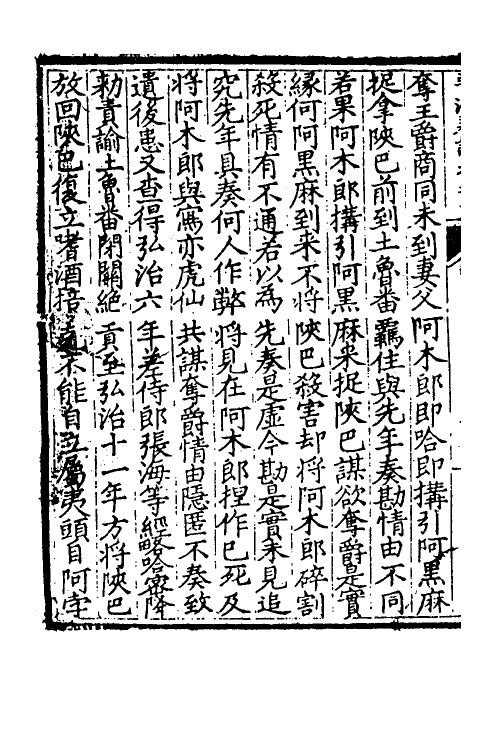 奪王爵商同未到妻父阿木郎即哈即搆引阿黑麻
捉拿陝巴前到土魯番羈住與先年奏勘情由不同
若果阿木郎搆引阿黑麻来捉陝巴謀欲奪爵是實
緣何阿黑麻到来不將陝巴殺害却將阿木郎碎割
殺死情有不通若以為先奏是虛今勘是實未見追
究先年具奏何人作弊將見在阿木郎捏作已死及
將阿木郎與寫亦虎仙共謀奪爵情由隱匿不奏致
遺後患又查得弘治六年差侍郎張海等經略哈密降
勑責諭土魯番閉關絕貢至弘治十一年方將陝巴
放回陝巴復立嗜酒掊不能自立屬夷頭目阿孛